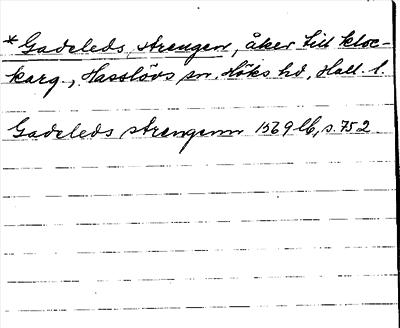 *Gadeleds strengen, åker till kloc-
karg., Hasslövs sn, Höks hd, Hall. l.
Gadeleds strengenn 1569 lb, s. 752